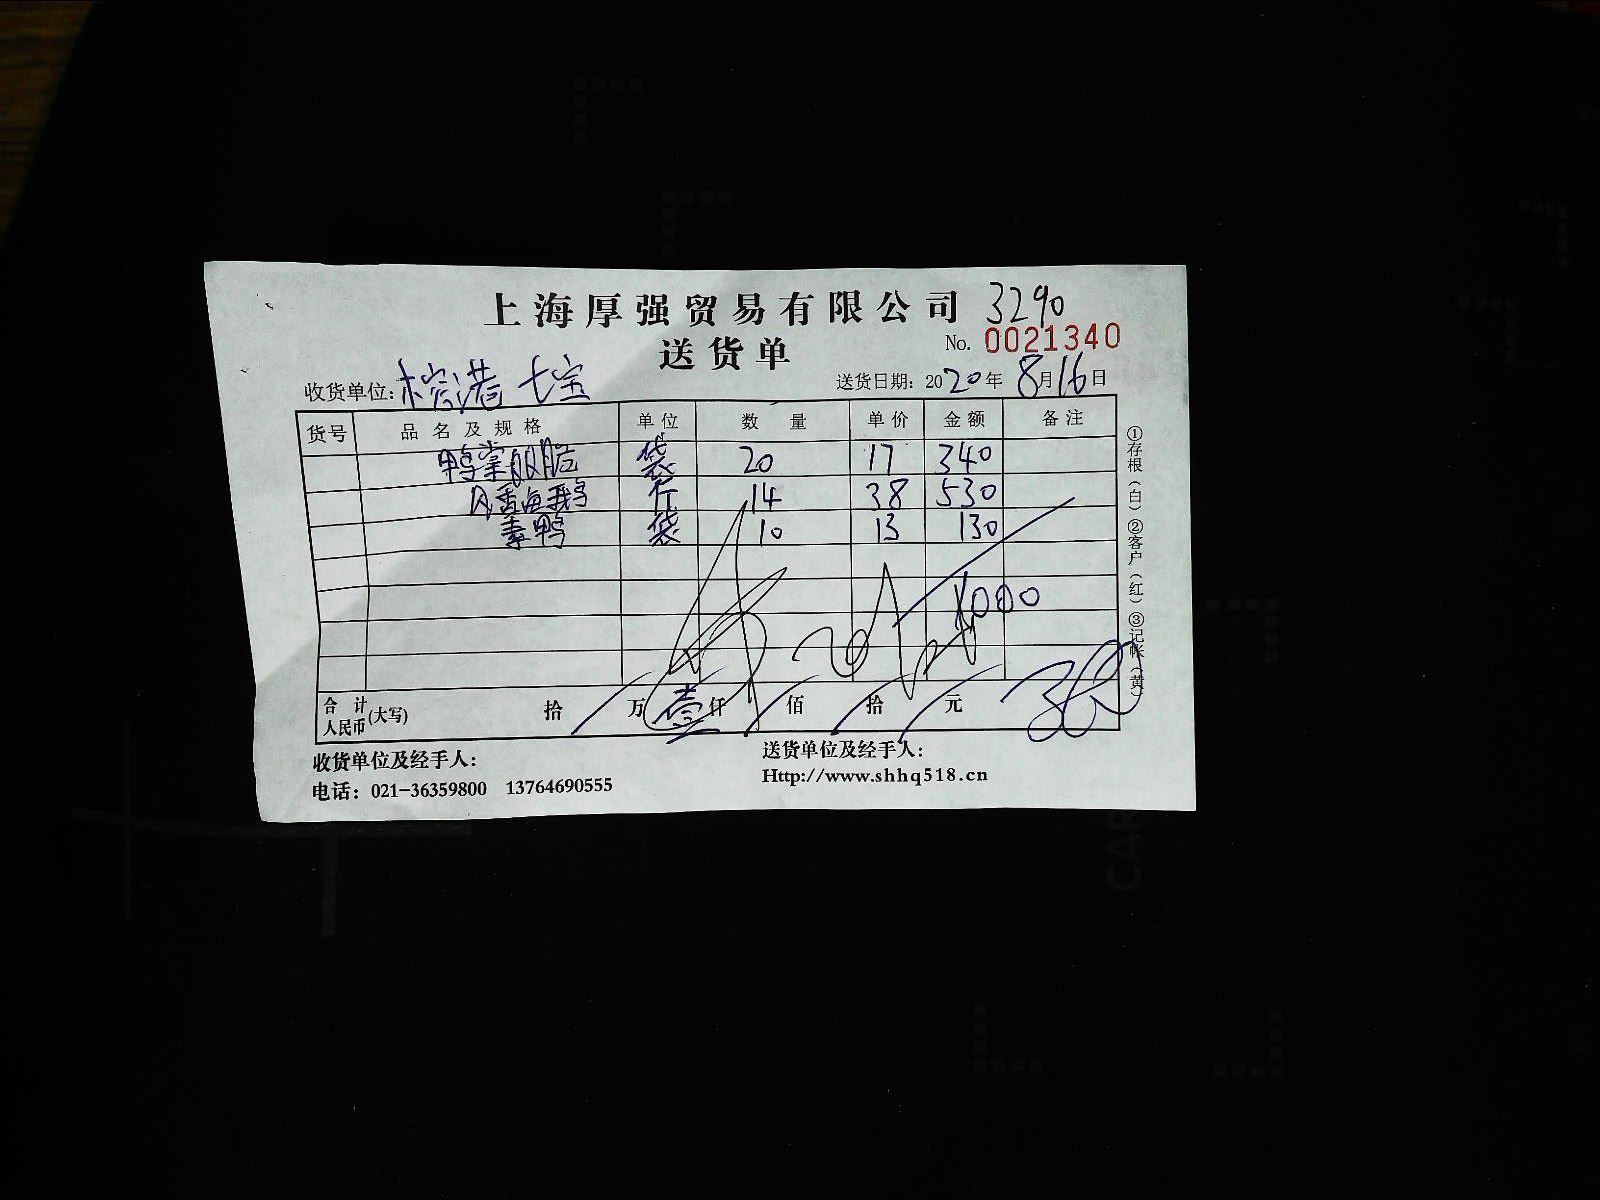 上海厚强贸易有限公司 3290
送货单 No. 0021340
收货单位: 七宝 送货日期: 2020年8月16日
货号 品名及规格 单位 数量 单价 金额 备注
鸭掌 袋 20 17 340
14 38 530
素鸭 袋 10 13 130
1000
合计人民币(大写) 拾 万 壹仟 佰 拾 元
收货单位及经手人: 送货单位及经手人:
电话: 021-36359800 13764690555 Http://www.shhq518.cn
①存根(白)②客户(红)③记帐(黄)